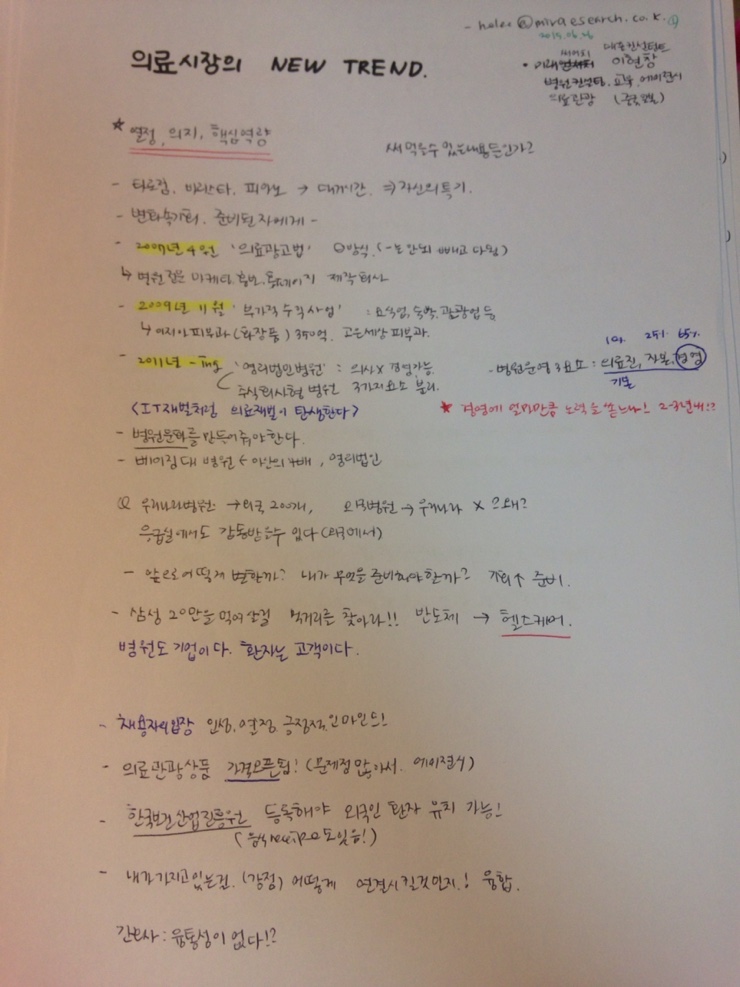 2015.06.26
의료시장의 NEW TREND.
대표컨설턴트
이현창
병원컨설팅. 교육, 에이전시
의료관광
★ 열정, 의지, 핵심역량
써먹을수 있는내용들인가?
- 타로점, 바리스타, 피아노 → 대기시간 ⇒ 자신의특기.
- 변화속기회. 준비된 자에게 -
- 2007년 4월 '의료광고법' 방식 (~는 안돼 빼고 다됨)
↳ 병원전문 마케팅, 홍보, 홈페이지 제작회사
- 2009년 11월 '부가적 수익사업' : 요식업, 숙박, 관광업 등
↳ 피부과 (화장품) 350억. 고운세상 피부과.
10% 25% 65%
- 2011년 ~ing '영리법인병원' : 의사X 경영가능
- 병원운영 3요소 : 의료진, 자본, 경영
주식회사형 병원 3가지요소 분리.
기본
<IT재벌처럼 의료재벌이 탄생한다>
★ 경영에 얼마만큼 노력을 쏟느냐! 2~3년내!?
- 병원문화를 만들어줘야한다.
- 베이징대 병원 , 영리법인
Q 우리나라병원 → 외국 200개, 외국병원 → 우리나라 X 왜?
응급실에서도 감동받을수 있다 (외국에서)
- 앞으로 어떻게 변할까? 내가 무엇을 준비해야할까? 준비.
- 삼성 20만을 먹여살릴 먹거리를 찾아라!! 반도체 → 헬스케어.
병원도 기업이다. 환자는 고객이다.
- 채용자의입장 인성, 열정, 긍정적인마인드!
- 의료관광상품 가격오픈됨! (문제점많아서. 에이전시)
- 한국보건산업진흥원 등록해야 외국인 환자 유치 가능!
- 내가가지고있는것. (강점) 어떻게 연결시킬것인지! 융합.
간호사 : 융통성이 없다!?